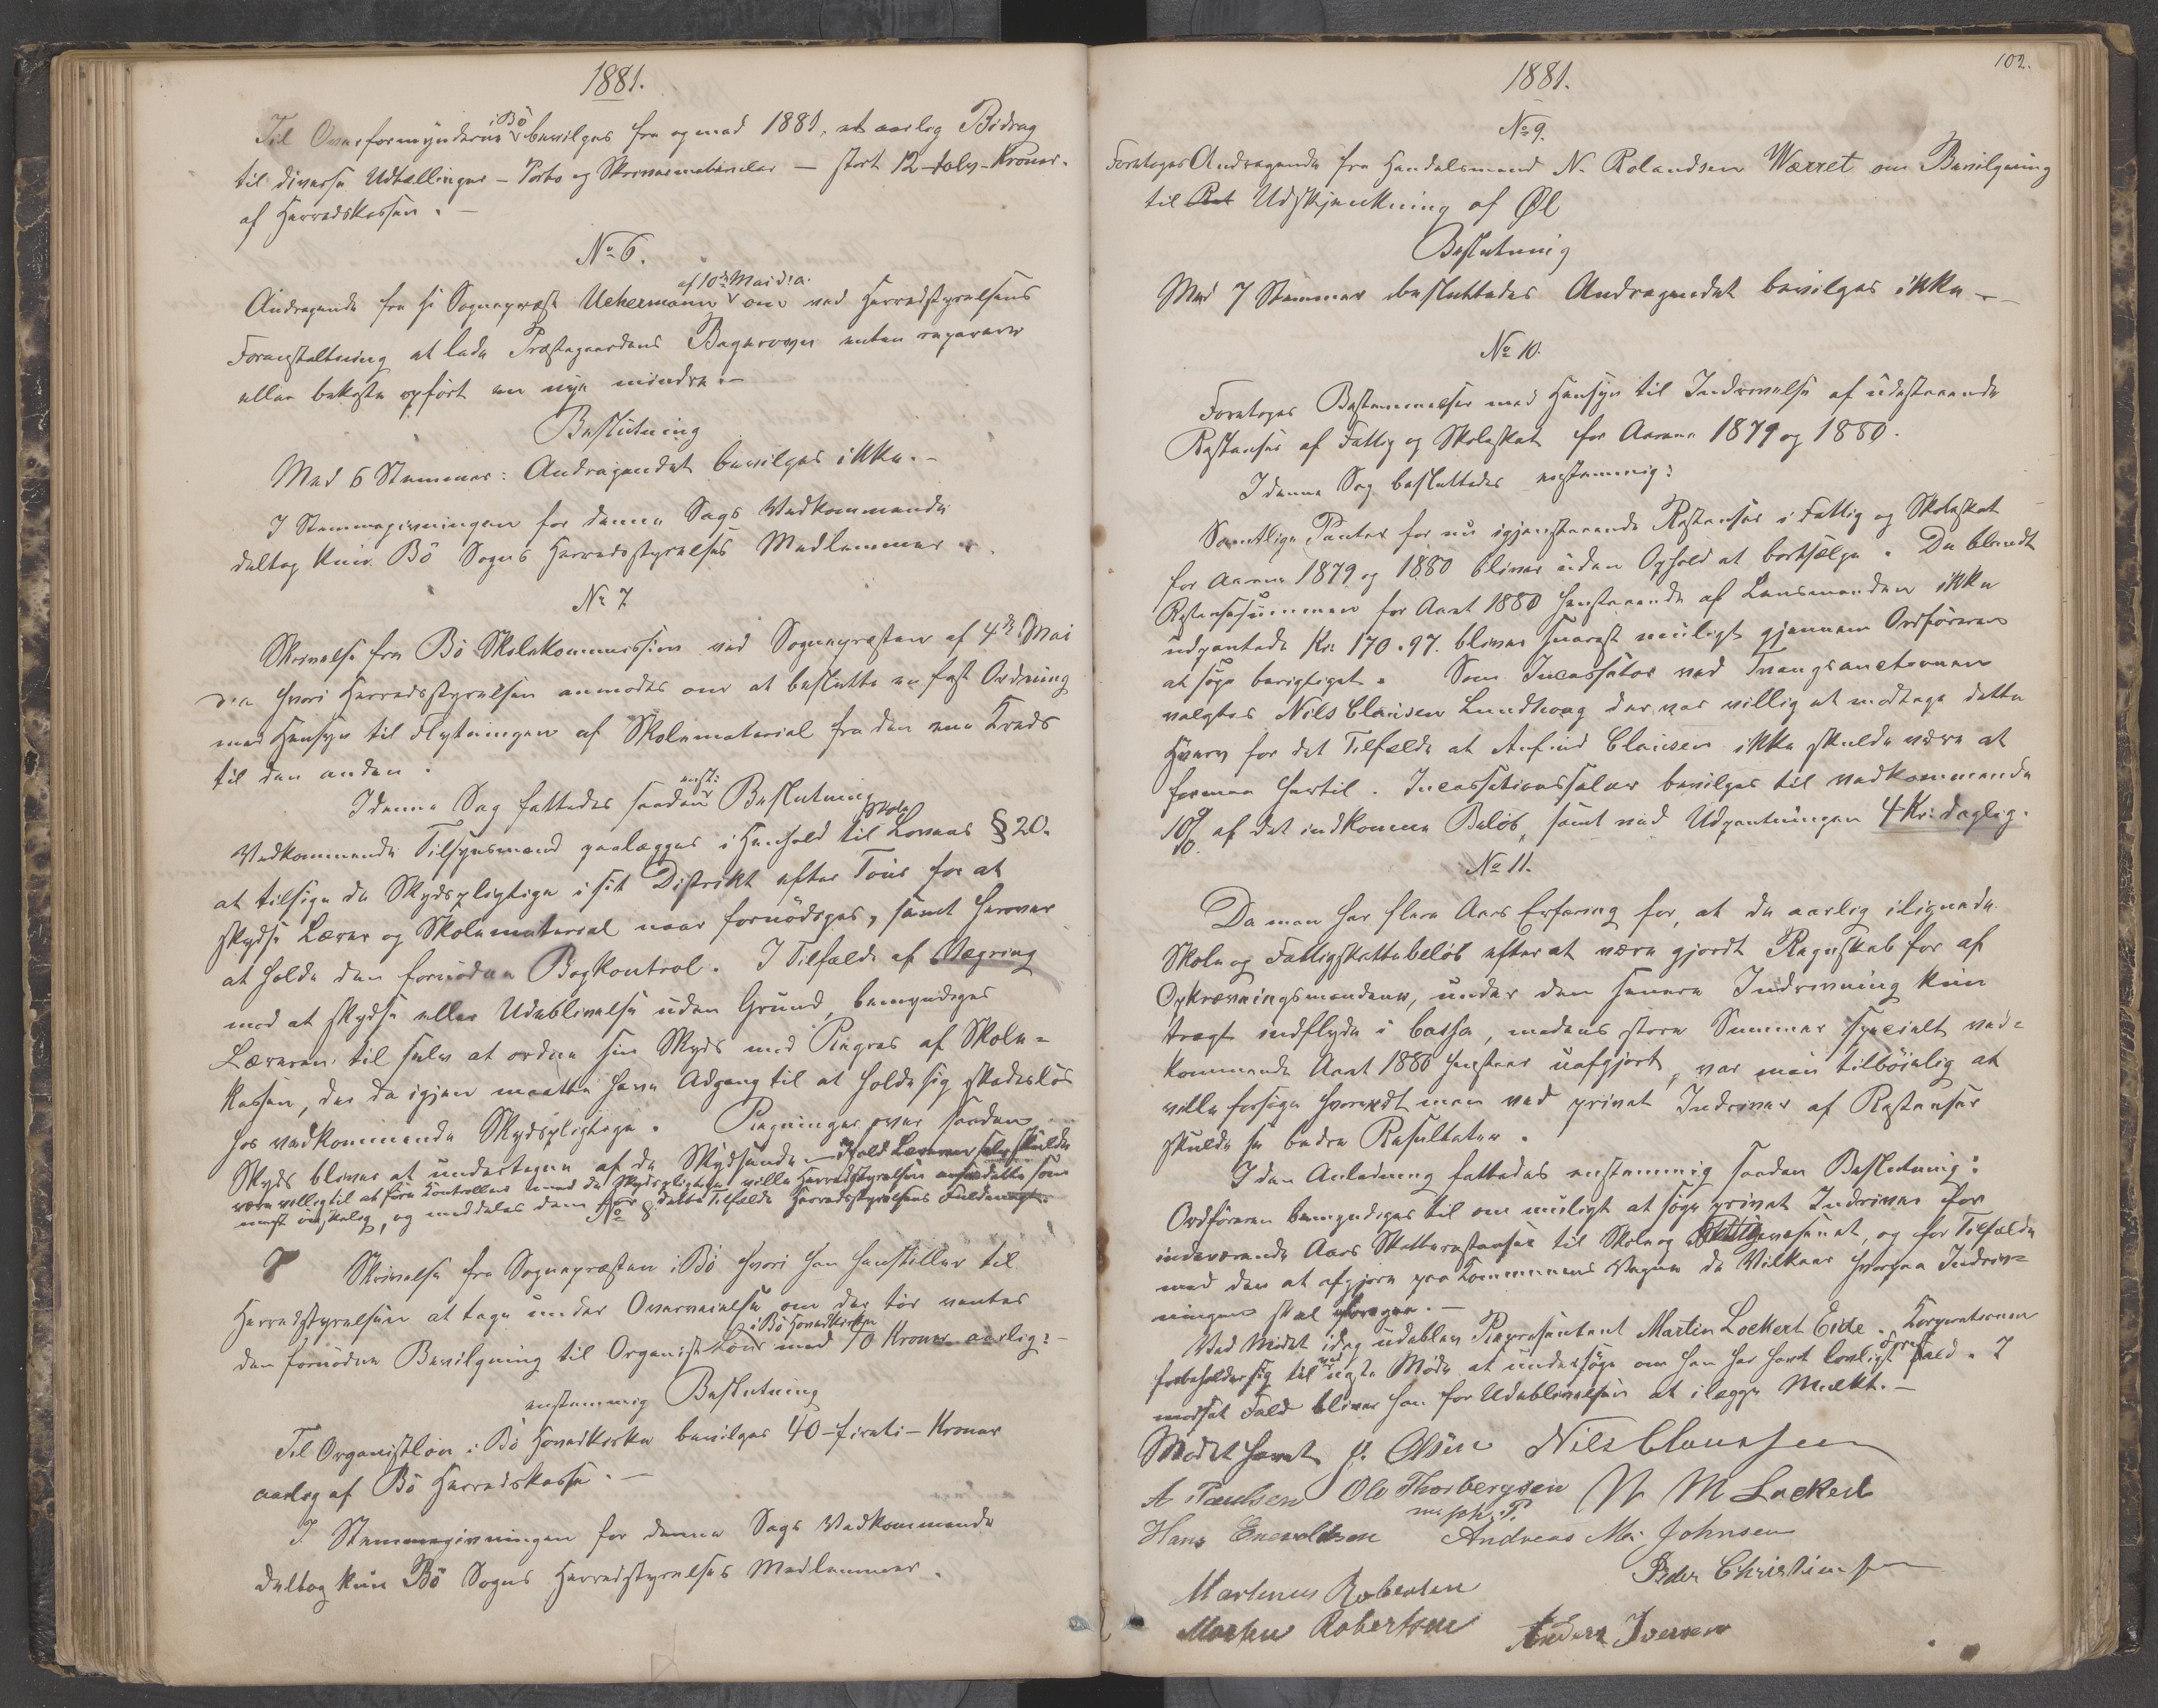 1881.
Til Overformynderne i Bö bevilges fra og med 1881, et aarlig Bidrag
til diverse Udtællinger – Porto og Skrivematerialer – stort 12 – tolv – Kroner
af Herredskassen. –
No 6.
Andragende fra hr Sognepræst Uchermann af 10de Mai d: a. om ved Herredstyrelsens
Foranstaltning at lade Præstegaardens Bagerovn enten reparere
eller bekoste opført en nye mindre. –
Beslutning
Med 6 Stemmer: Andragendet bevilges ikke. –
I Stemmegivningen for denne Sags Vedkommende
deltog kun Bö Sogns Herredsstyrelses Medlemmer.
No 7
Skrivelse fra Bö Skolekommission ved Sognepræsten af 4de Mai
d. a. hvori Herredsstyrelsen anmodes om at beslutte en fast Ordning
med Hensyn til Flytningen af Skolemateriel fra den ene Kreds
til den anden.
I denne Sag fattedes saadan enst: Beslutning
Vedkommende Tilsynsmænd paalægges i Henhold til Skole Lovens § 20.
at tilsige de Skydspligtige i sit Distrikt efter Tour for at
skydse Lærer og Skolemateriel naar fornödiges, samt herover
at holde den fornödne Bogkontrol. I Tilfælde af Vægring
mod at skydse eller Udeblivelse uden Grund, bemyndiges
Læreren til selv at ordne sin Skyds med Penges af Skole-
kassen, der da igjen maatte have Adgang til at holde sig skadeslös
hos vedkommende Skydspligtige. Regninger over saadan
Skyds bliver at undertegne af de Skydsende. – Ifald Læreren selv skulde
være villig til at före Kontrollen med de Skydspligtige ville Herredstyrelsen ansee dette som
mest önskelig, og meddeles dem for dette Tilfælde Herredsstyrelsens Fuldmagt.
No 8
Skrivelse fra Sognepræsten i Bö hvori han henstiller til
Herredsstyrelsen at tage under Overveielse om der tör ventes
den fornödne Bevilgning til Organist Lön i Bö Hovedkirke med 70 Kroner aarlig: –
enstemmig Beslutning
Til Organistlön i Bö Hovedkirke bevilges 40 – firti – Kroner
aarlig af Bö Herredskasse. –
I Stemmegivningen for denne Sags Vedkommende
deltog kun Bö Sogns Herredstyrelses Medlemmer.
102.
1881.
No 9.
Foretoges Andragende fra Handelsmand N. Rolandsen Værret om Bevilgning
til Ret Udskjænkning af Øl
Beslutning
Med 7 Stemmer besluttedes Andragendet bevilges ikke –
No 10.
Foretoges Bestemmelser med Hensyn til Inddrivelse af udestaaende
Restanser af Fattig og Skoleskat for Aarene 1879 og 1880.
I denne Sag besluttedes enstemmig:
Samtlige Panter for nu igjenstaaende Restanser i Fattig og Skoleskat
for Aarene 1879 og 1880 bliver uden Ophold at bortsælge. De blandt
Restansesummen for Aaret 1880 henstaaende af Lensmanden ikke
udpantede Kr: 170.97. bliver snarest muligt gjennem Ordföreren
at söge berigtiget. Som Incassator ved Tvangsauctionen
valgtes Nils Clausen Lundhoug der var villig at modtage dette
Hverv for det Tilfælde at Anfind Clausen ikke skulde være at
formaa hertil. Incassationssalær bevilges til vedkommende
10% af det indkomne Belöb, samt ved Udpantningen 4 Kr: daglig.
No 11.
Da man har flere Aars Erfaring for, at de aarlig ilignede
Skole og Fattigskattebelöb efter at være gjordt Regnskab for af
Opkrævningsmændene, under den senere Inddrivning kun
tragt indflyde i Cassa, medens store Summer specielt ved-
kommende Aaret 1880 henstaar uafgjort, var man tilböielig at
ville forsöge hvorvidt man ved privat Inddriver af Restanser
skulde se bedre Resultater.
I den Anledning fattedes enstemmig saadan Beslutning:
Ordföreren bemyndiges til om muligt at söge privat Inddriver for
indeværende Aars Skatterestanser til Skole og Fattigvæsenet, og for Tilfælde
med den at afgjöre paa Kommunens Vegne de Vilkaar hvorpaa Inddriv-
ningen skal foregaa. –
Ved Mödet idag udeblev Repræsentant Martin Lockert Eide. Korporationen
forbeholder sig til ved nyste Möde at undersöge om han har havt lovligt Forfald. I
modsat Fald bliver han for Udeblivelsen at ilægge Mulkt. –
Mödet hævet. P. Olsen Nils Claussen
A Paulsen Ole Thorbergsen N M Lockert
m. p. P.
Hans Enevoldsen Andreas M. Johnsen
Peder Christiansen
Martinus Robertsen
Morten Robertsen Anders Iversen